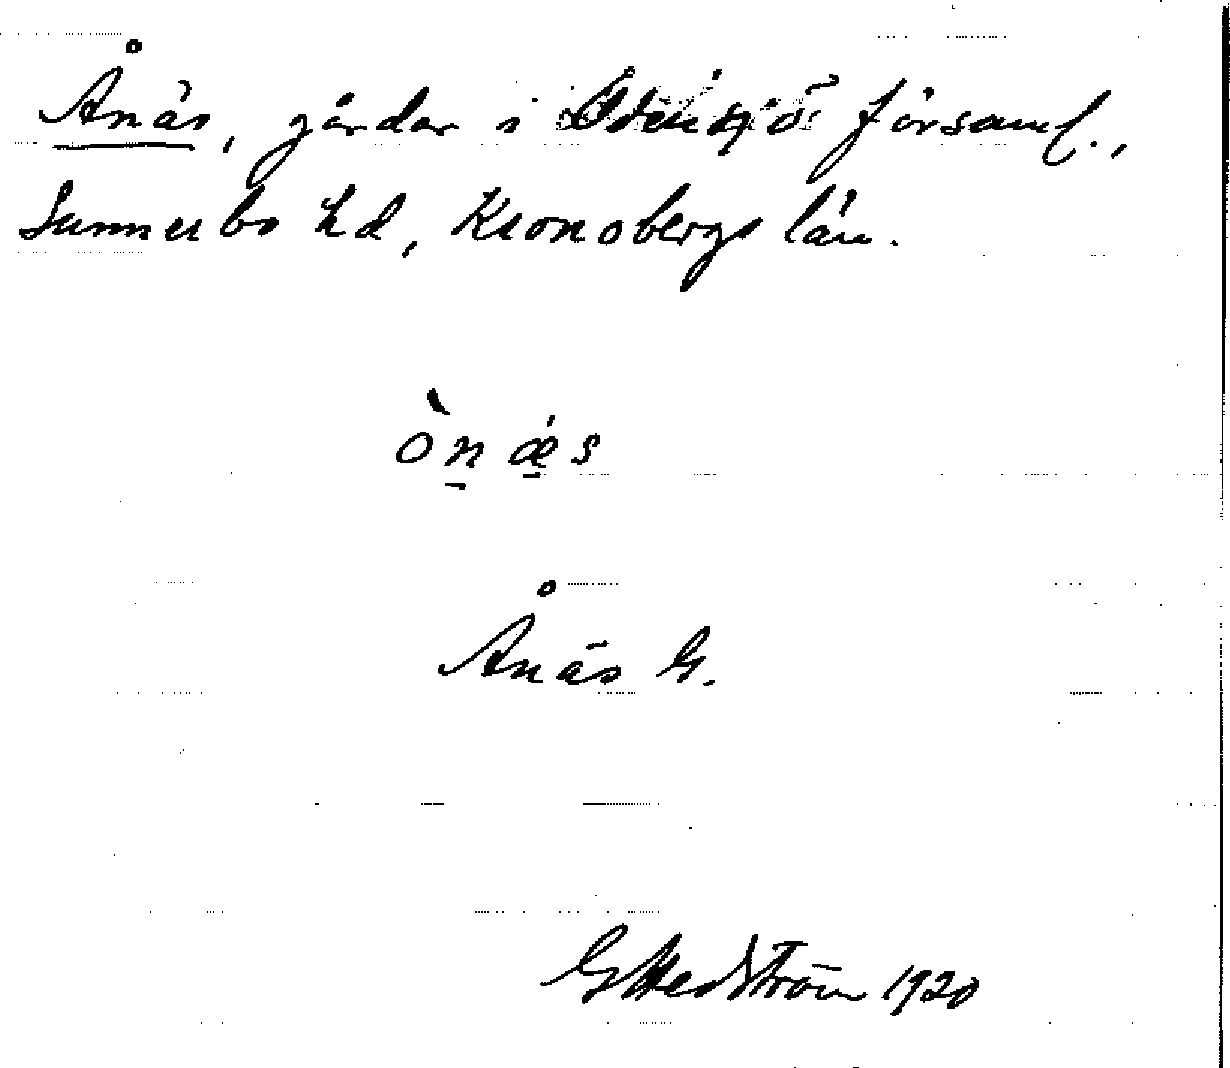 Ånäs, gårdar i Odensjö församl.,
Sunnerbo hd, Kronobergs län.
ònæ̱s
Ånäs G.
G Hedström 1920